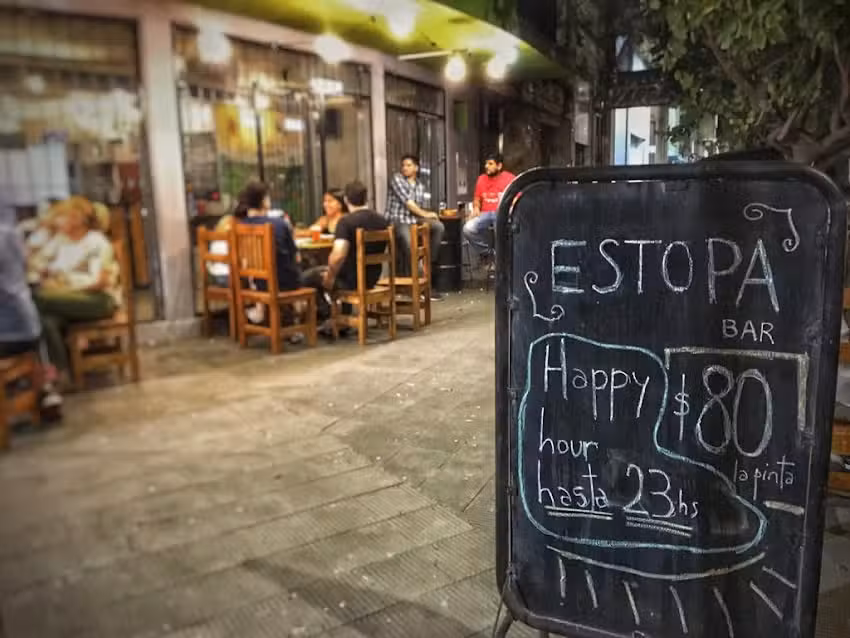 ESTOPA
BAR
Happy
hour
hasta 23hs
$80
la pinta